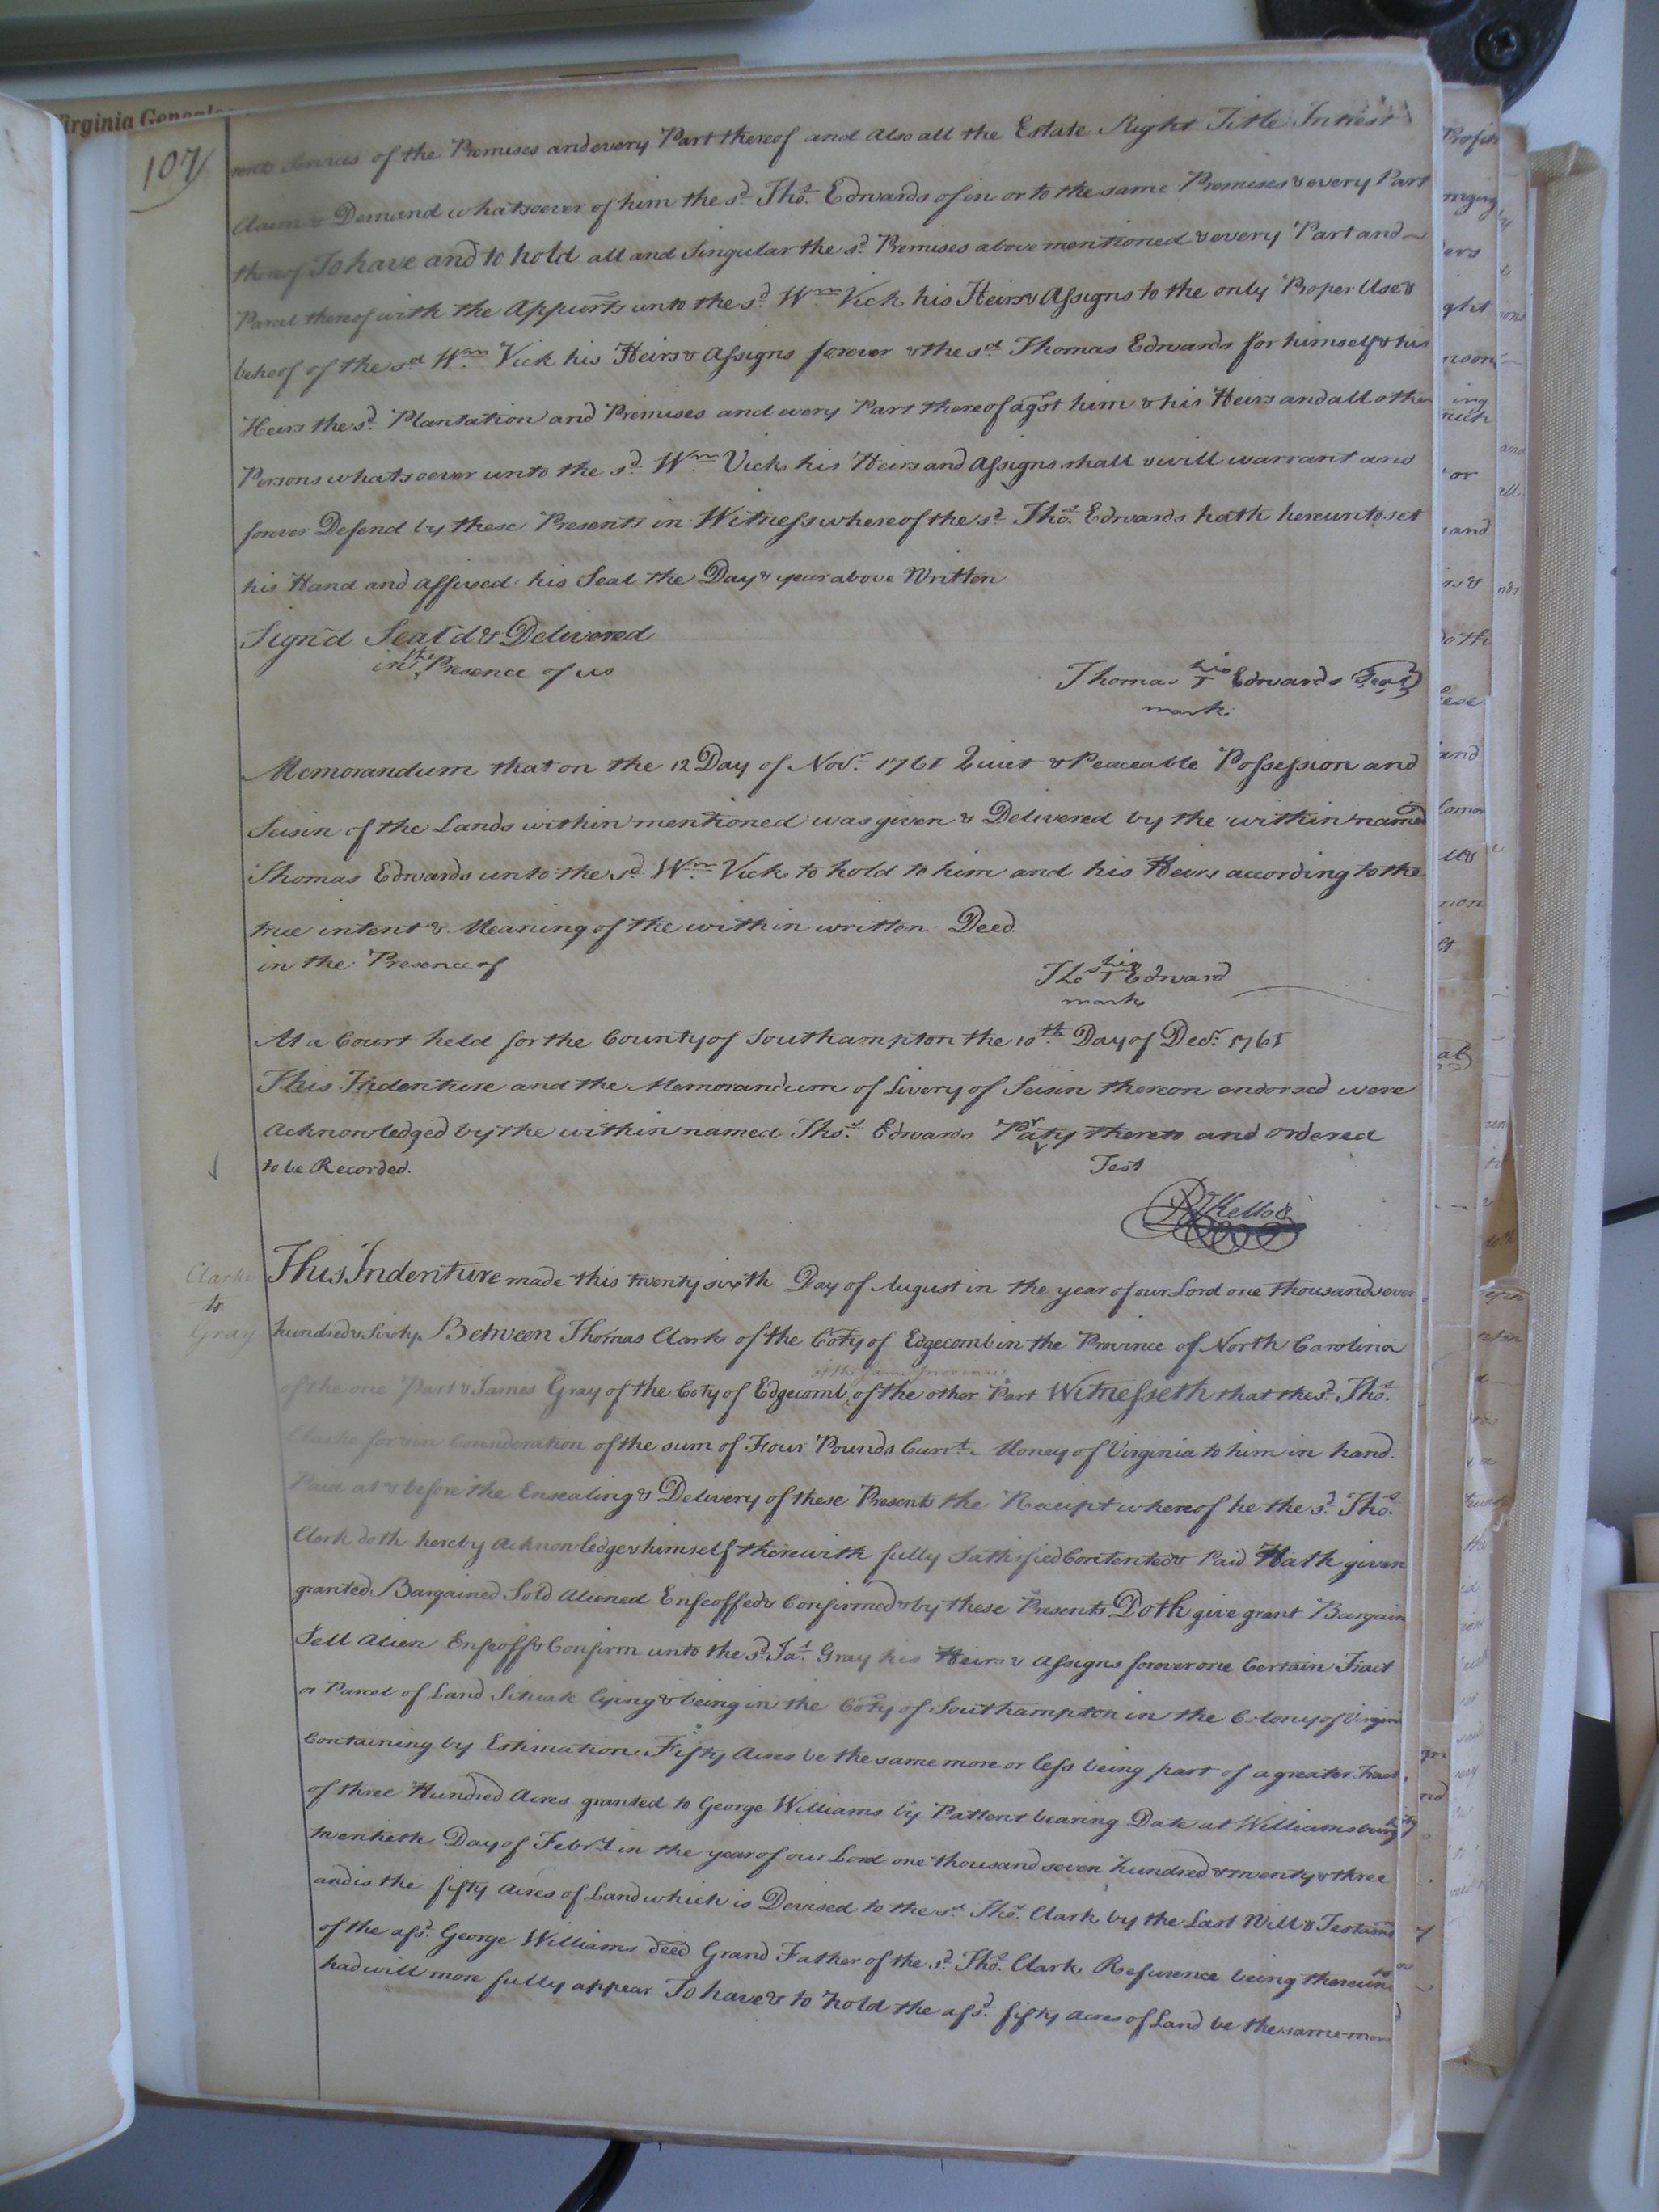 Virginia Genealo
107
rents services of the Premises and every Part thereof and also all the Estate Right Title Intrest
Claim & Demand whatsoever of him the sd. Thos. Edwards of in or to the same Premises & every Part
thereof To have and to hold all and Singular the sd. Premises above mentioned & every Part and
Parcel thereof with the Appurts unto the sd. Wm. Vick his Heirs & Assigns to the only Proper Use &
behoof of the sd. Wm. Vick his Heirs & Assigns forever & the sd. Thomas Edwards for himself & his
Heirs the sd. Plantation and Premises and every Part thereof agst him & his Heirs and all other
Persons whatsoever unto the sd. Wm. Vick his Heirs and Assigns shall & will warrant and
forever Defend by these Presents in Witness whereof the sd. Thos. Edwards hath hereunto set
his Hand and affixed his Seal the Day & year above Written
Sign'd Seal'd & Delivered
in the Presence of us
Thomas his T Edwards Seal
mark
Memorandum that on the 12 Day of Novr. 1761 Quiet & Peaceable Possession and
Seisin of the Lands within mentioned was given & Delivered by the within named
Thomas Edwards unto the sd. Wm. Vick to hold to him and his Heirs according to the
true intent & Meaning of the within written Deed
in the Presence of
Tho his T Edward
mark
At a Court held for the County of Southampton the 10th. Day of Decr. 1761
This Indenture and the Memorandum of Livery of Seisin thereon endorsed were
Acknowledged by the within named Thos. Edwards Party thereto and ordered
to be Recorded.
Test
R Kello
Clarke
to
Gray
This Indenture made this twenty sixth Day of August in the year of our Lord one thousand seven
hundred & Sixty Between Thomas Clark of the Coty of Edgecomb in the Province of North Carolina
of the one Part & James Gray of the Coty of Edgecomb of the same province of the other Part Witnesseth that the sd. Thos.
Clarke for & in Consideration of the sum of Four Pounds Currt. Money of Virginia to him in hand
Paid at & before the Ensealing & Delivery of these Presents the Receipt whereof he the sd. Thos.
Clark doth hereby Acknowledge & himself therewith fully Sattisfied Contented & Paid Hath given
granted Bargained Sold Aliened Enfeoffed & Confirmed & by these Presents Doth give grant Bargain
Sell Alien Enfeoff & Confirm unto the sd. Jas. Gray his Heirs & Assigns forever one Certain Tract
or Parcel of Land Situate lying & being in the Coty of Southampton in the Colony of Virgini
Containing by Estimation Fifty Acres be the same more or less being part of a greater Tract
of three Hundred Acres granted to George Williams by Pattent bearing Date at Williamsburg
twentieth Day of Febry. in the year of our Lord one thousand seven hundred & twenty & three
and is the fifty Acres of Land which is Devised to the sd. Thos. Clark by the Last Will & Testamt
of the afsd. George Williams deed Grand Father of the sd. Thos. Clark Referrence being thereunto
had will more fully appear To have & to hold the afsd. fifty Acres of Land be the same more